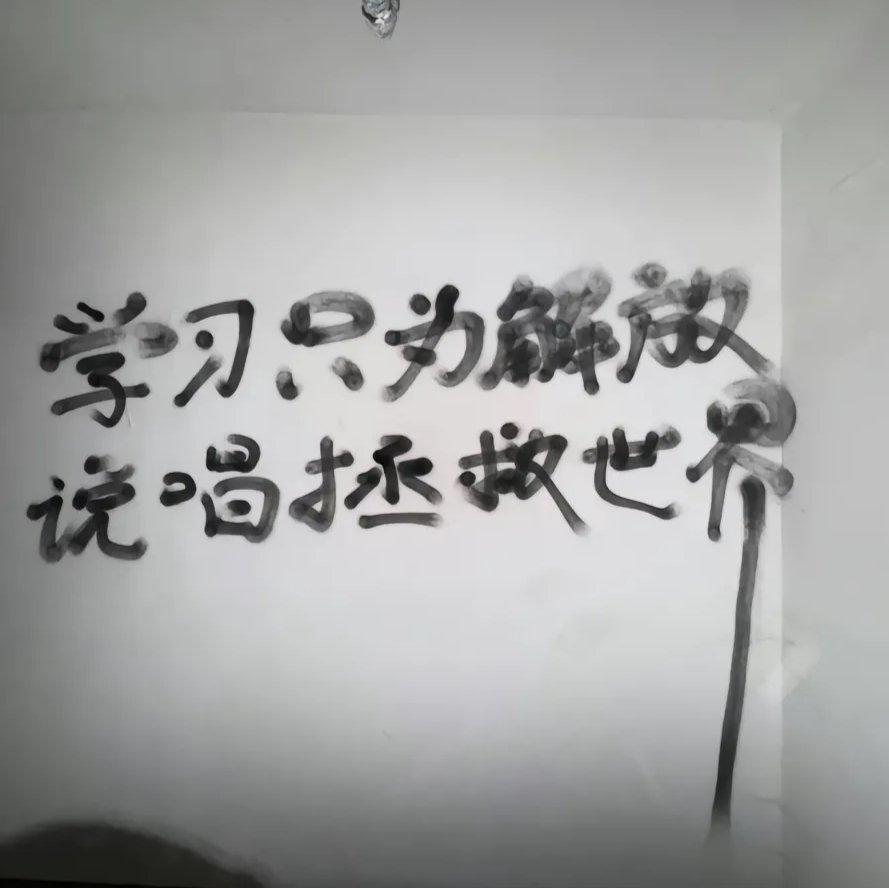 学习只为解放
说唱拯救世界